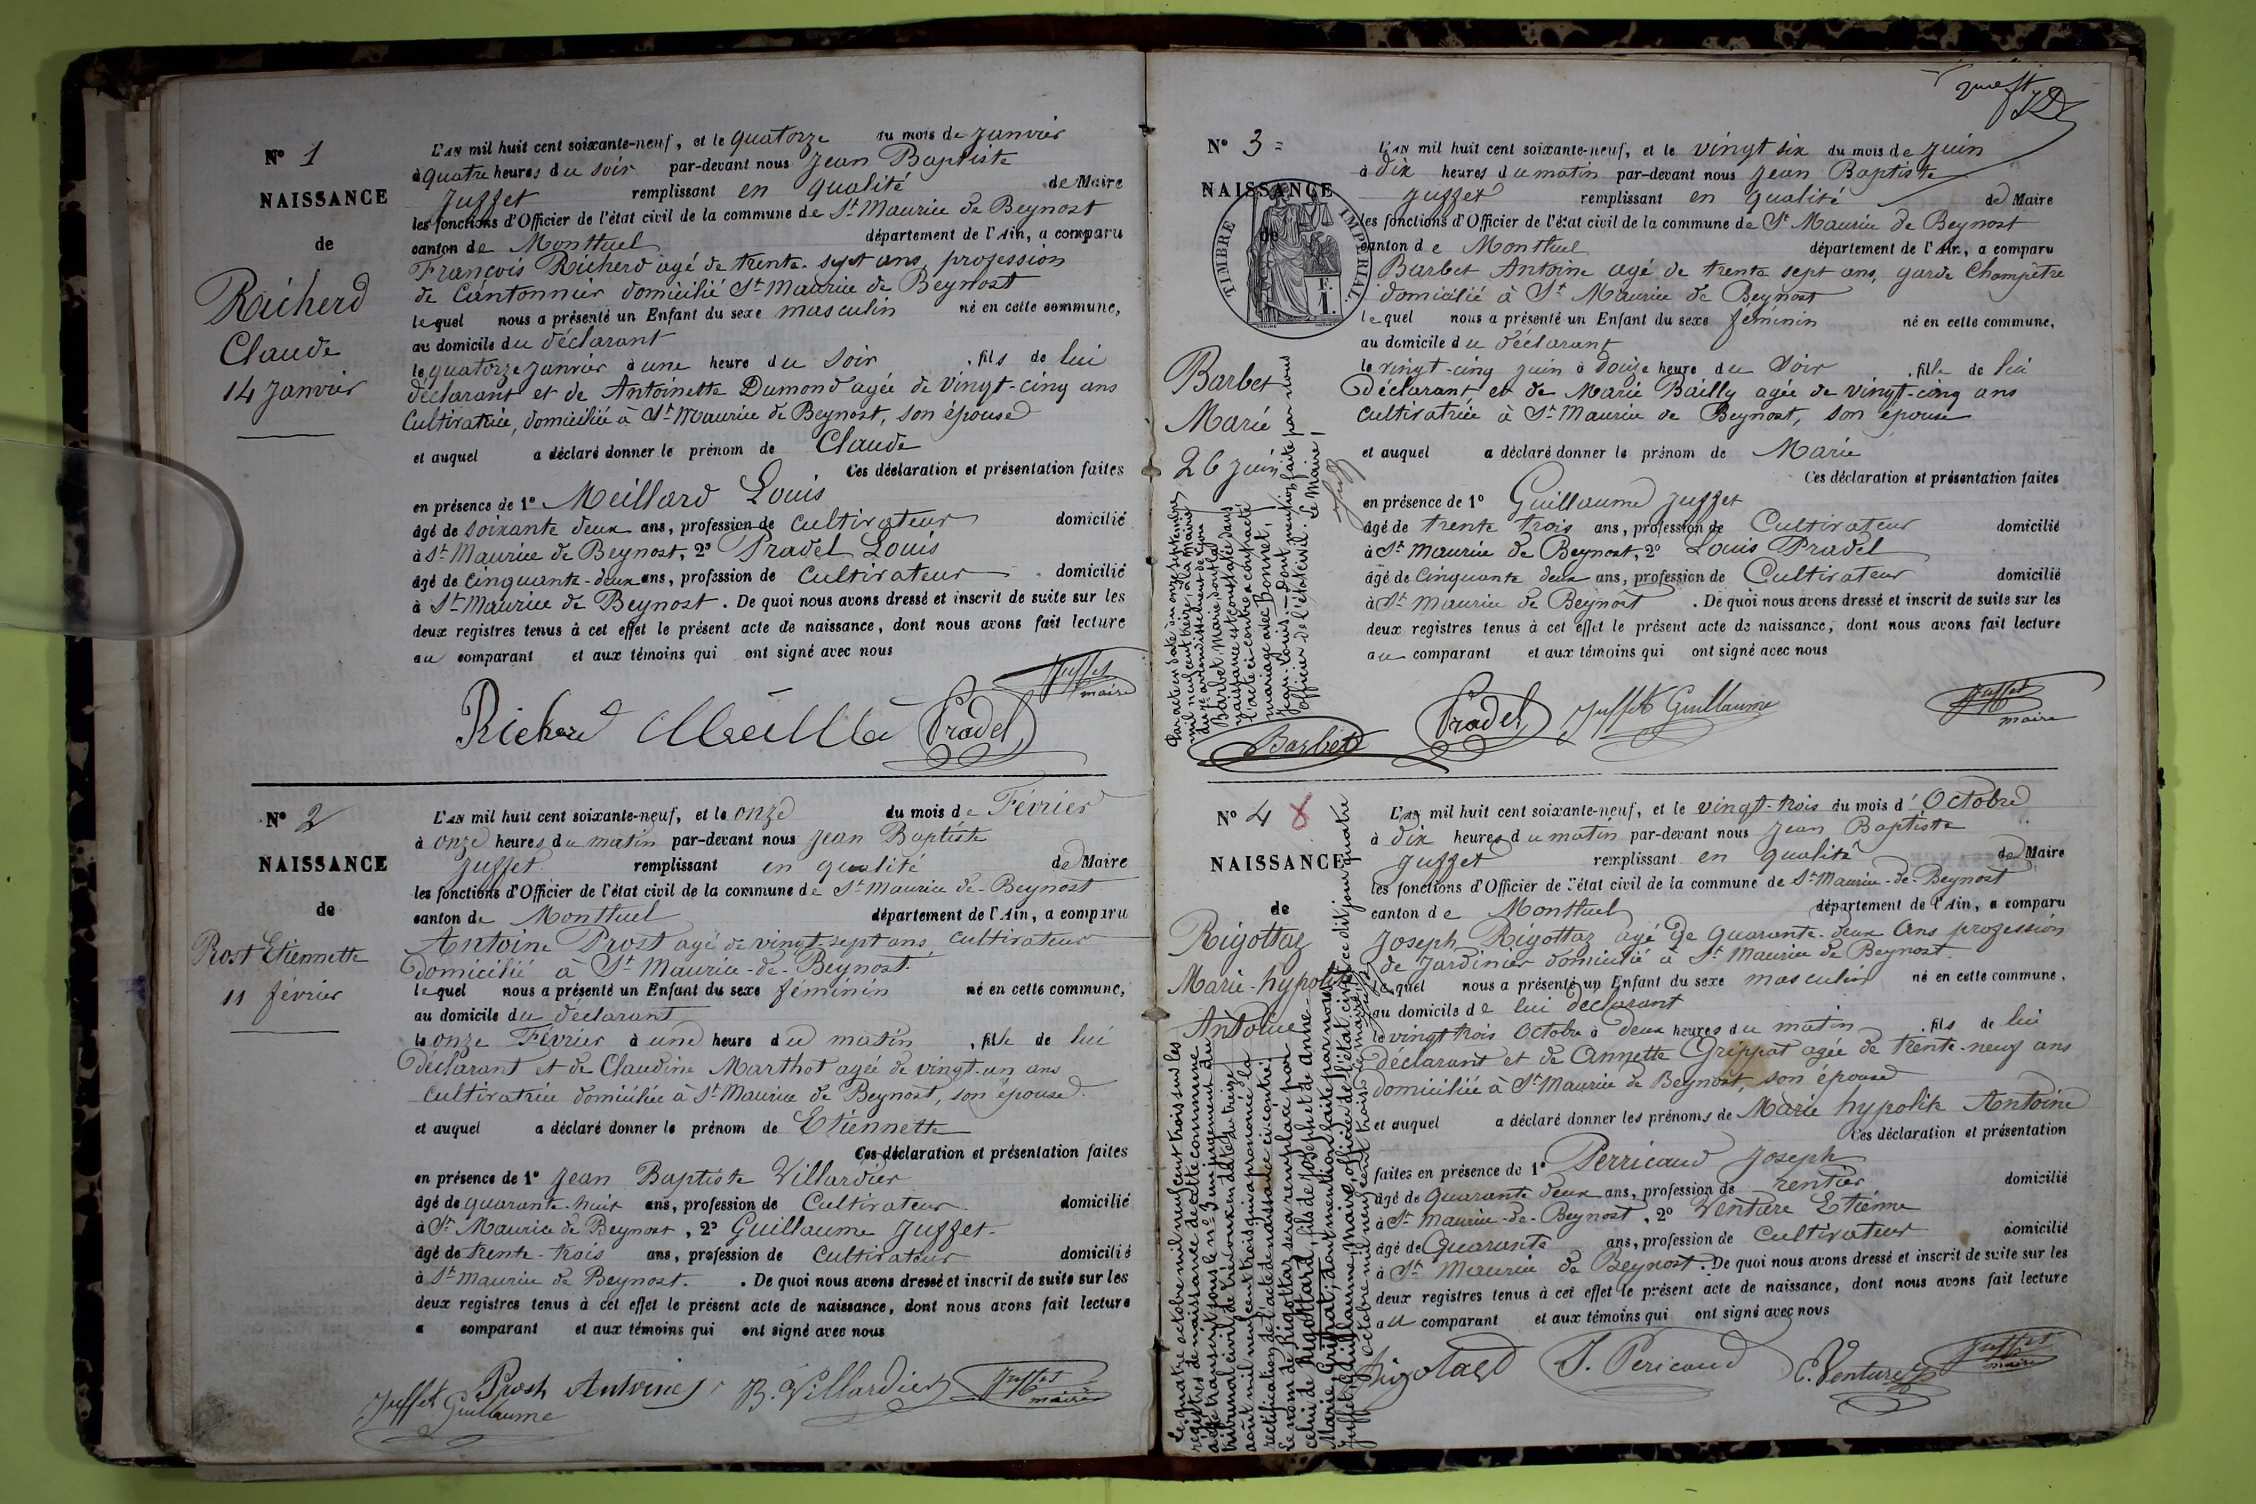 N° 1
NAISSANCE
de
Richerd
Claude
14 Janvier
L'AN mil huit cent soixante-neuf, et le quatorze du mois de Janvier
à quatre heures du soir par-devant nous Jean Baptiste
Juffet remplissant en qualité de Maire
les fonctions d'Officier de l'état civil de la commune de St Maurice de Beynost
canton de Montluel département de l'Ain, a comparu
François Richerd agé de trente-sept ans, profession
de Cantonnier domicilié St Maurice de Beynost
lequel nous a présenté un Enfant du sexe masculin né en cette commune,
au domicile du déclarant
le quatorze janvier à une heure du Soir, fils de lui
déclarant et de Antoinette Dumond agée de vingt-cinq ans
Cultivatrice, domiciliée à St Maurice de Beynost, son épouse
et auquel a déclaré donner le prénom de Claude
Ces déclaration et présentation faites
en présence de 1° Meillard Louis
âgé de soixante deux ans, profession de Cultivateur domicilié
à St Maurice de Beynost, 2° Pradel Louis
âgé de Cinquante-deux ans, profession de Cultivateur domicilié
à St Maurice de Beynost. De quoi nous avons dressé et inscrit de suite sur les
deux registres tenus à cet effet le présent acte de naissance, dont nous avons fait lecture
au comparant et aux témoins qui ont signé avec nous
Juffet
maire
Richerd Pradel
N° 2
NAISSANCE
de
Rost Etiennette
11 février
L'AN mil huit cent soixante-neuf, et le onze du mois de Février
à onze heures du matin par-devant nous Jean Baptiste
Juffet remplissant en qualité de Maire
les fonctions d'Officier de l'état civil de la commune de St Maurice-de-Beynost
canton de Montluel département de l'Ain, a comparu
Antoine Prost agé de vingt-sept ans, cultivateur
domicilié à St Maurice-de-Beynost.
lequel nous a présenté un Enfant du sexe féminin né en cette commune,
au domicile du déclarant
le onze Février à une heure du matin, fille de lui
déclarant et de Claudine Marthot agée de vingt-un ans
Cultivatrice domiciliée à St Maurice de Beynost, son épouse.
et auquel a déclaré donner le prénom de Etiennette
Ces déclaration et présentation faites
en présence de 1° Jean Baptiste Villardier
âgé de quarante-huit ans, profession de Cultivateur domicilié
à St Maurice de Beynost, 2° Guillaume Juffet
âgé de trente-trois ans, profession de Cultivateur domicilié
à St Maurice de Beynost. De quoi nous avons dressé et inscrit de suite sur les
deux registres tenus à cet effet le présent acte de naissance, dont nous avons fait lecture
a comparant et aux témoins qui ont signé avec nous
Juffet Guillaume Prost Antoine B. Villardier Juffet
maire
N° 3
NAISSANCE
de
TIMBRE IMPERIAL
F.
1.
Barbet
Marie
26 juin
L'AN mil huit cent soixante-neuf, et le vingt six du mois de Juin
à dix heures du matin par-devant nous Jean Baptiste
Juffet remplissant en qualité de Maire
les fonctions d'Officier de l'état civil de la commune de St Maurice de Beynost
canton de Montluel département de l'Ain, a comparu
Barbet Antoine agé de trente sept ans, garde Champêtre
domicilié à St Maurice de Beynost
lequel nous a présenté un Enfant du sexe féminin né en cette commune,
au domicile du déclarant
le vingt-cinq juin à douze heure du Soir, fille de lui
déclarant et de Marie Bailly agée de vingt-cinq ans
cultivatrice à St Maurice de Beynost, son épouse
et auquel a déclaré donner le prénom de Marie
Ces déclaration et présentation faites
en présence de 1° Guillaume Juffet
âgé de trente trois ans, profession de Cultivateur domicilié
à St Maurice de Beynost, 2° Louis Pradel
âgé de Cinquante deux ans, profession de Cultivateur domicilié
à St Maurice de Beynost. De quoi nous avons dressé et inscrit de suite sur les
deux registres tenus à cet effet le présent acte de naissance, dont nous avons fait lecture
au comparant et aux témoins qui ont signé avec nous
Par acte en date du onze septembre
mil neuf cent treize, à la mairie
du arrondissement de Lyon
Barbet Marie dont la
naissance est constatée dans
l'acte ci-contre a contracté
mariage avec Bonnet,
Jean-Louis, dont mention faite par nous
officier de l'état civil. Le Maire,
Juffet
Barbet Pradel Juffet Guillaume Juffet
maire
N° 4 8
NAISSANCE
de
Rigottaz
Marie-hypolite
Antoine
L'AN mil huit cent soixante-neuf, et le vingt-trois du mois d'Octobre
à dix heures du matin par-devant nous Jean Baptiste
Juffet remplissant en qualité de Maire
les fonctions d'Officier de l'état civil de la commune de St Maurice-de-Beynost
canton de Montluel département de l'Ain, a comparu
Joseph Rigottaz agé de quarante-deux ans profession
de Jardinier domicilié à St Maurice de Beynost.
lequel nous a présenté un Enfant du sexe masculin né en cette commune,
au domicile de lui déclarant
le vingt trois Octobre à deux heures du matin, fils de lui
déclarant et de Annette Grippat agée de trente-neuf ans
domiciliée à St Maurice de Beynost, son épouse
et auquel a déclaré donner les prénoms de Marie hypolite Antoine
Ces déclaration et présentation
faites en présence de 1° Perricaud Joseph
âgé de quarante deux ans, profession de rentier domicilié
à St Maurice-de-Beynost, 2° Venture Etiénne
âgé de Quarante ans, profession de Cultivateur domicilié
à St Maurice de Beynost. De quoi nous avons dressé et inscrit de suite sur les
deux registres tenus à cet effet le présent acte de naissance, dont nous avons fait lecture
au comparant et aux témoins qui ont signé avec nous
Le quatre octobre mil neuf cent trois sur les
registres de naissance de cette commune
a été transcrit sous le n° 9 un jugement du
tribunal civil de Trévoux en date du treize
août mil neuf cent trois qui a prononcé la
rectification de l'acte de naissance ci-contre:
Le nom de Rigottaz sera remplacé par
celui de Rigottard, fils de Joseph et de Anne-
Marie Grippat; dont mention faite par nous
Juffet, Guillaume, Maire, officier de l'état civil, ce dit jour quatre
octobre mil neuf cent trois. Le maire
J. Pericaud E. Venture Juffet
maire